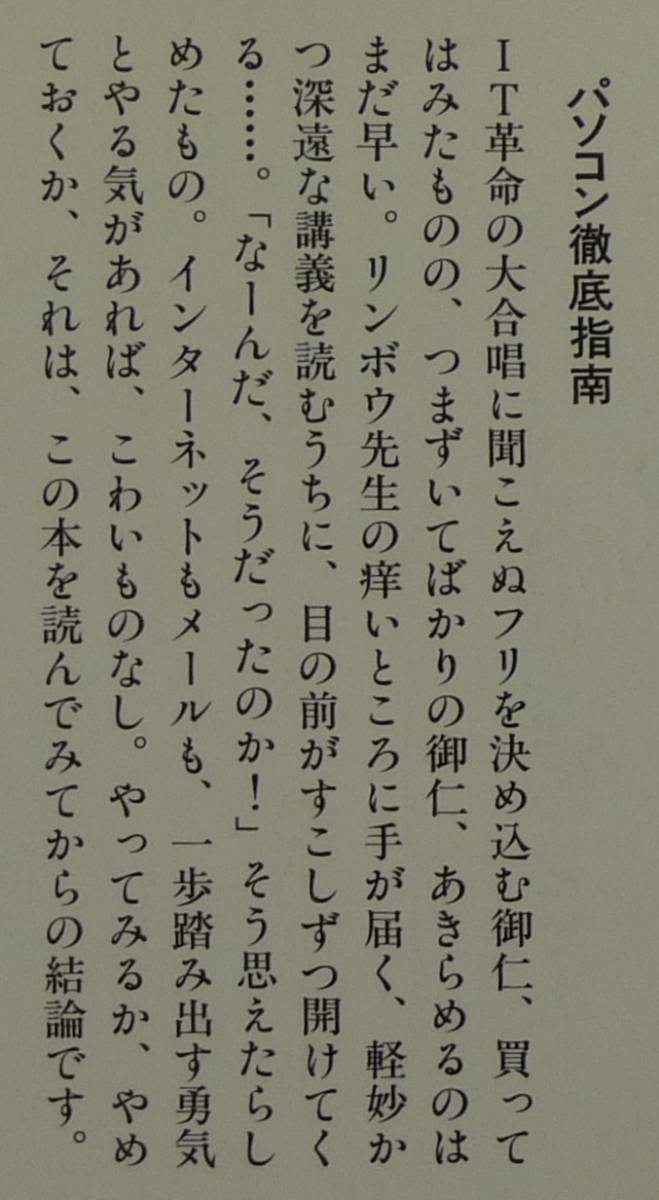 パソコン徹底指南
IT革命の大合唱に聞こえぬフリを決め込む御仁、買って
はみたものの、つまずいてばかりの御仁、あきらめるのは
まだ早い。リンボウ先生の痒いところに手が届く、軽妙か
つ深遠な講義を読むうちに、目の前がすこしずつ開けてく
る……。「なーんだ、そうだったのか!」そう思えたらし
めたもの。インターネットもメールも、一歩踏み出す勇気
とやる気があれば、こわいものなし。やってみるか、やめ
ておくか、それは、この本を読んでみてからの結論です。